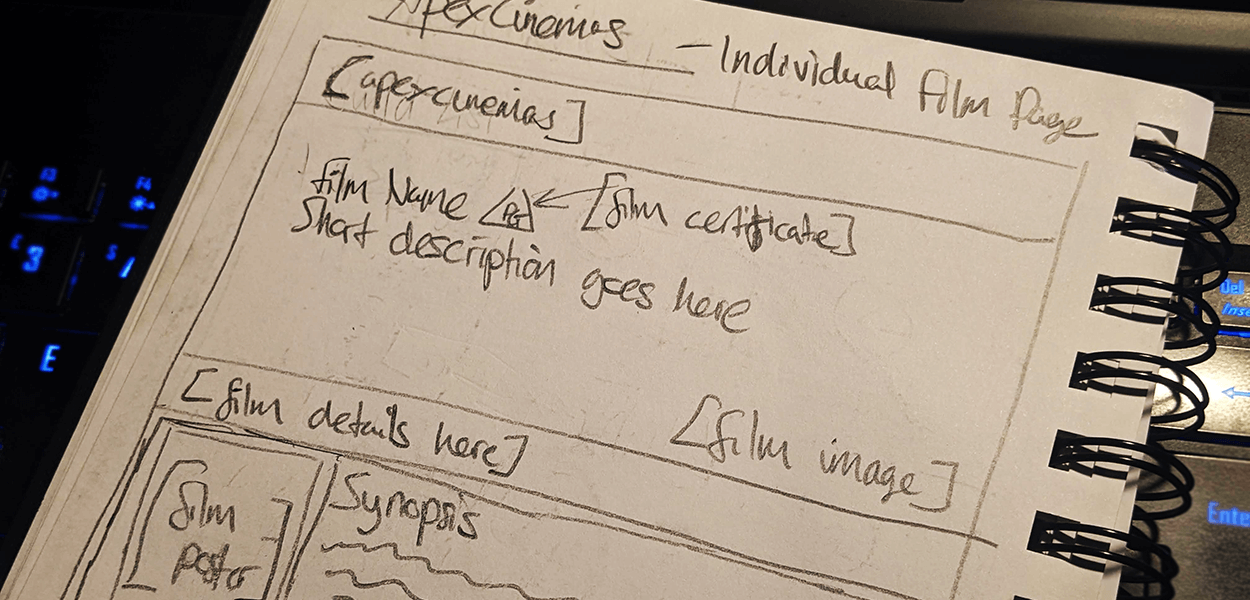 Apexcinemas – Individual Film Page
[apexcinemas]
film Name PG ← [film certificate]
Short description goes here
[film image]
[film details here]
[film poster]
Synopsis
F3
F4
3
E
Del
Inse
Ente